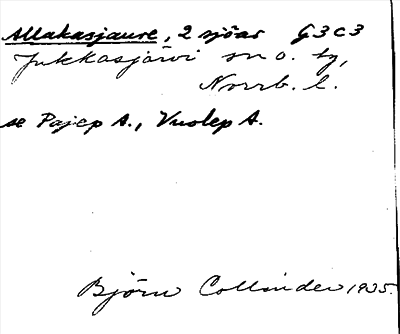 Allakasjaure, 2 sjöar G3c3
Jukkasjärvi sn o. by,
Norrb. l.
se Pajep A., Vuolep A.
Björn Collinder 1935.